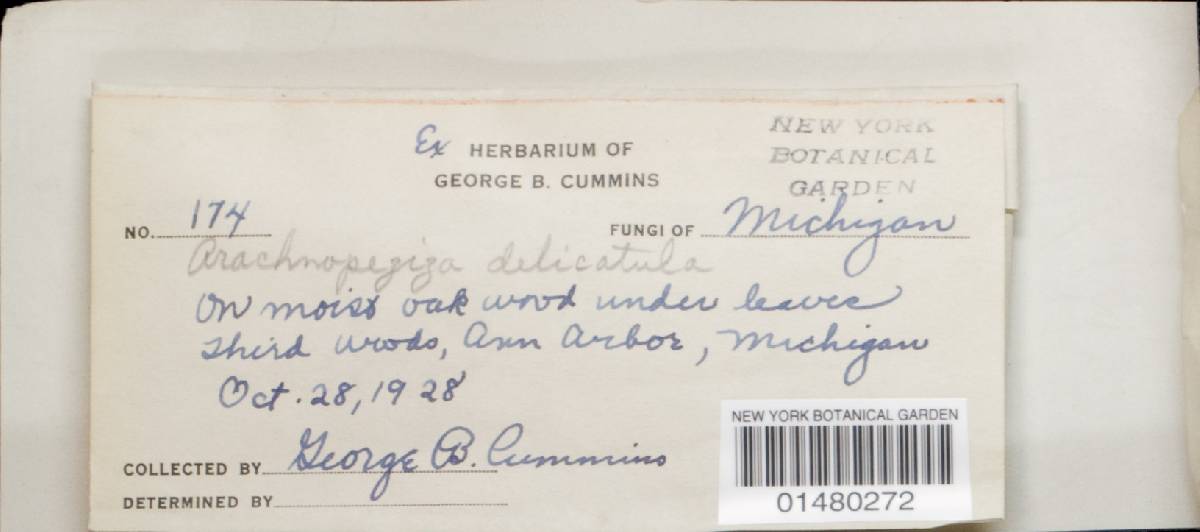 Ex HERBARIUM OF
GEORGE B. CUMMINS
NEW YORK
BOTANICAL
GARDEN
NO. 174
FUNGI OF Michigan
Arachnopeziza delicatula
On moist oak wood under leaves
Third Woods, Ann Arbor, Michigan
Oct. 28, 1928
COLLECTED BY George B. Cummins
DETERMINED BY
NEW YORK BOTANICAL GARDEN
01480272